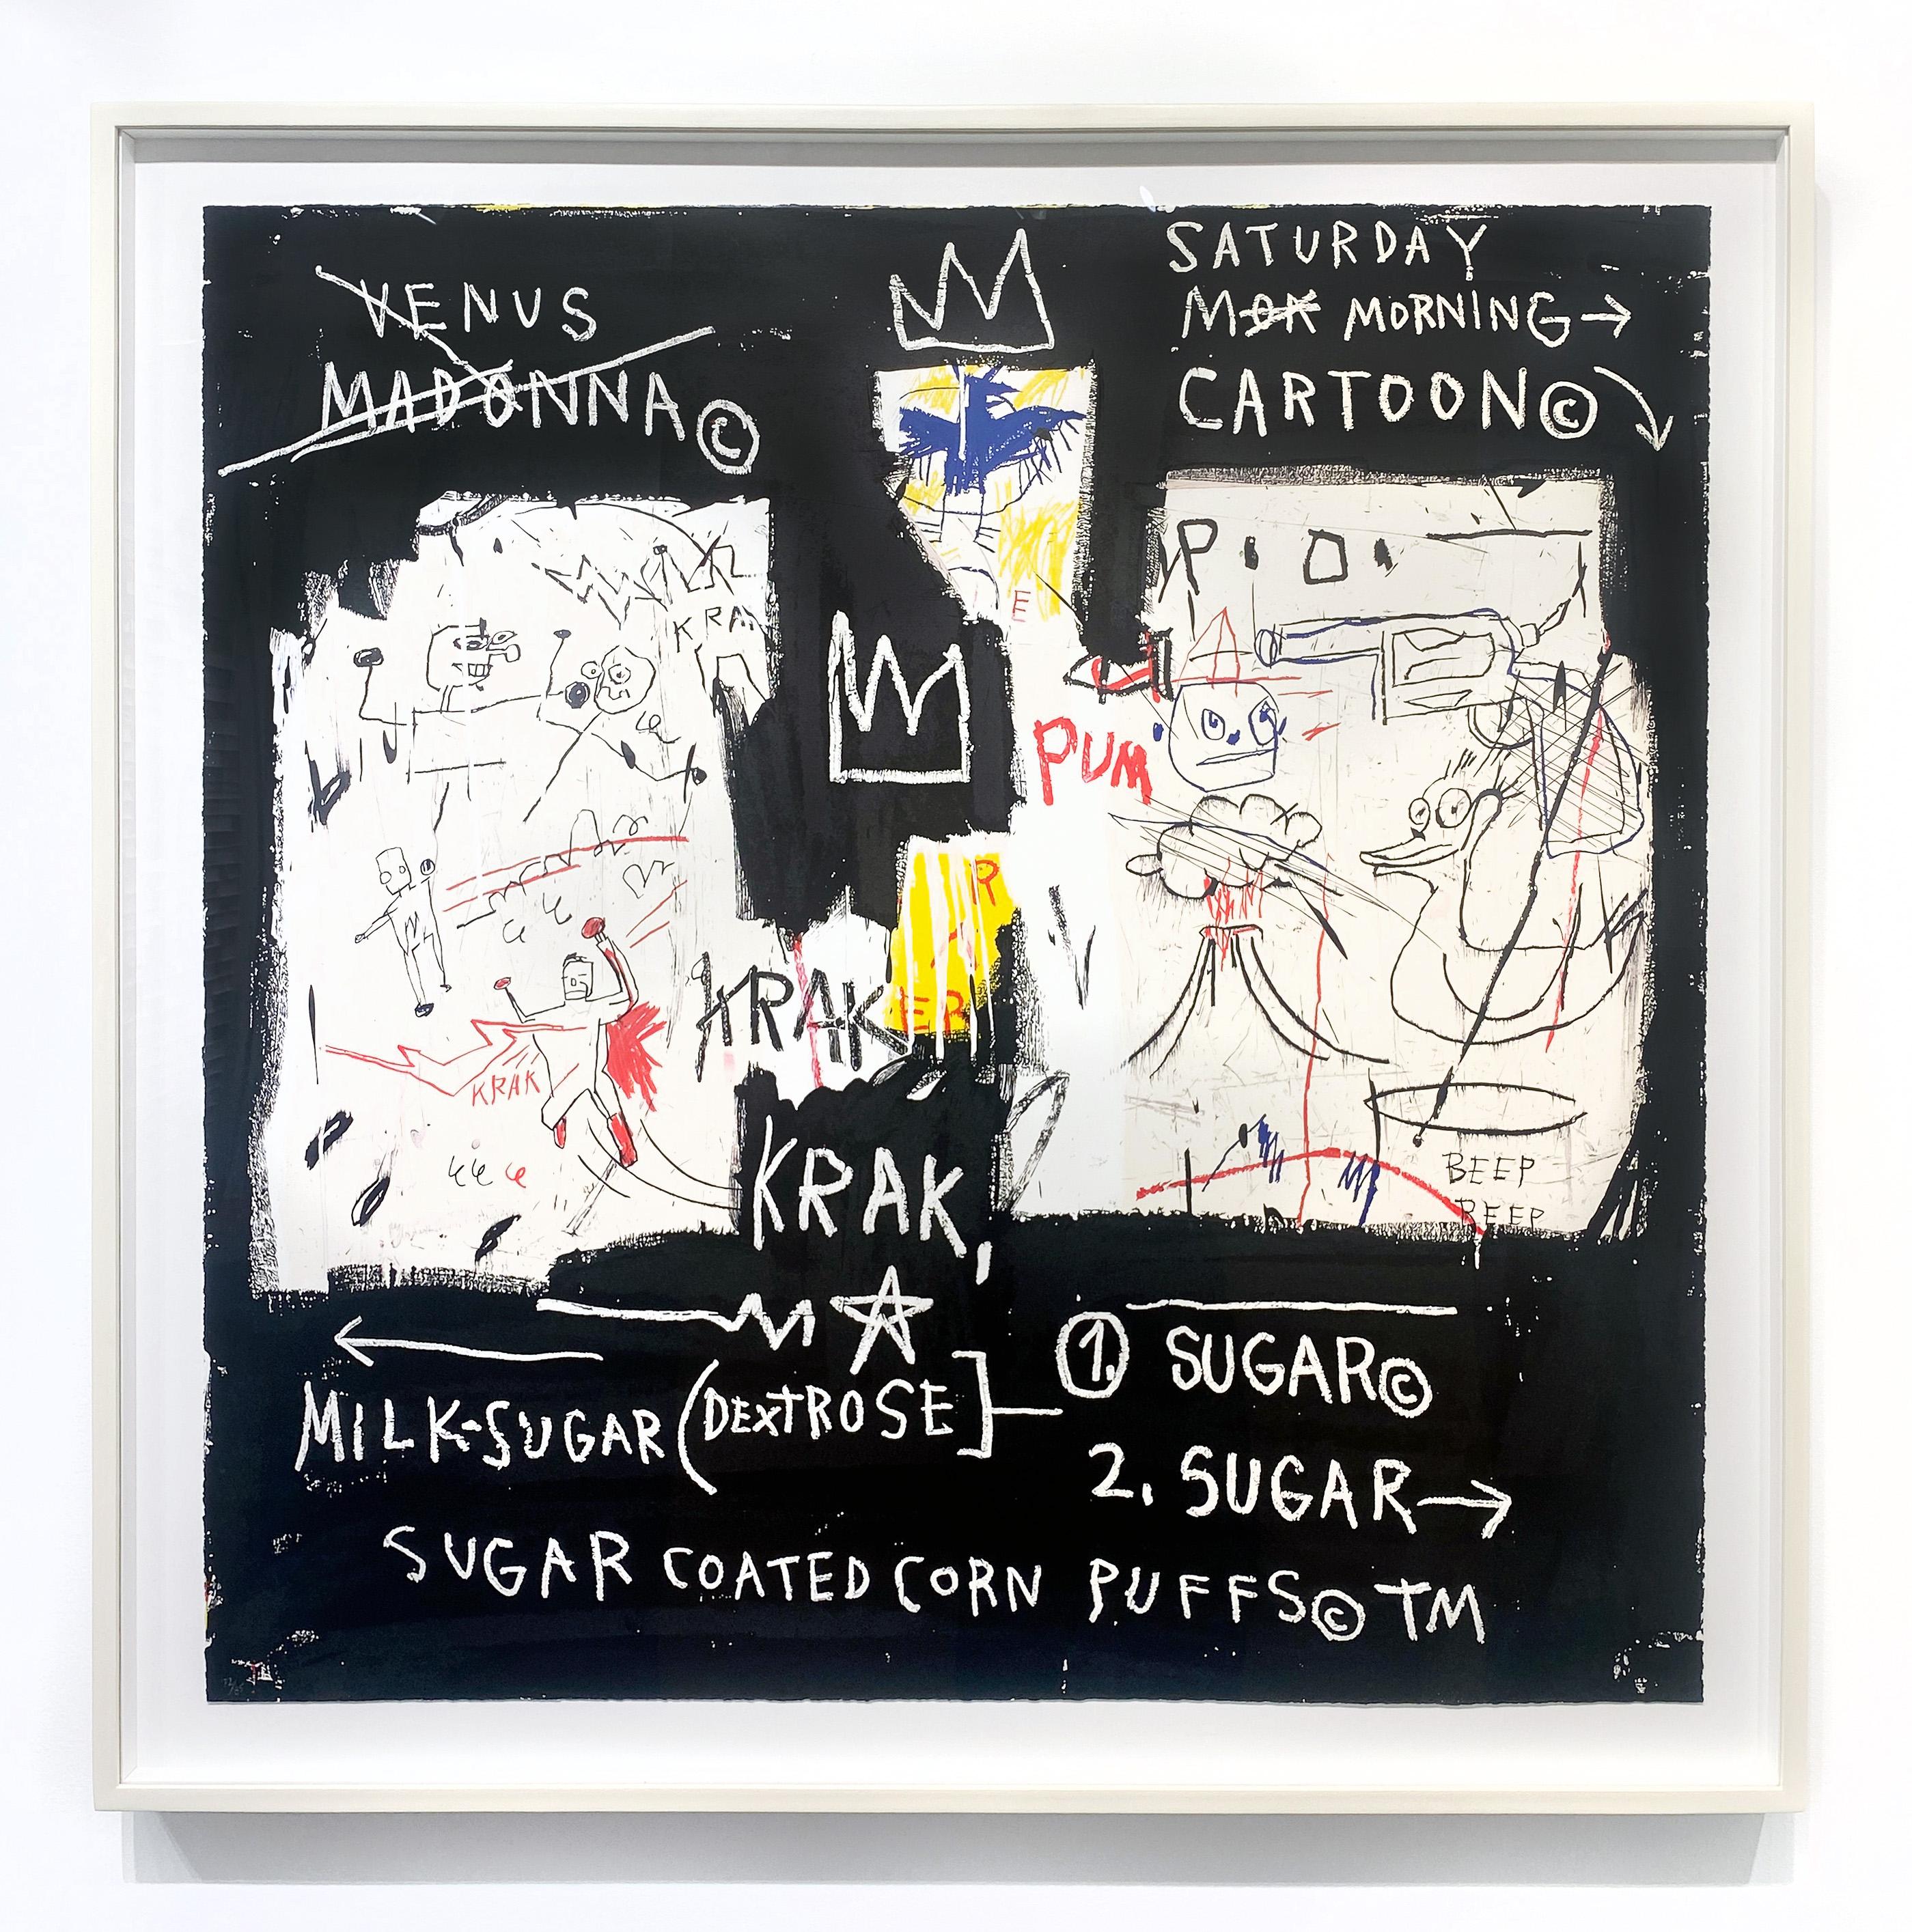 SATURDAY
VENUS
MOR MORNING→
MADONNA©
CARTOON©
P.O.
KRA
E
PUM
R
KRAK
ER
KRAK
BEEP
BEEP
KRAK,
← 
① SUGAR©
MILK-SUGAR (DEXTROSE]
2. SUGAR→
SUGAR COATED CORN PUFFS© TM